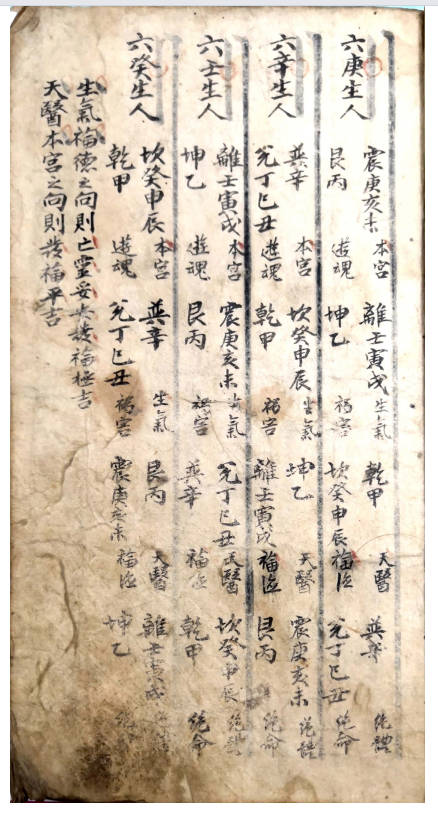 六庚生人
震庚亥未 本宮 離壬寅戌 生氣 乾甲 天醫 巽辛 絶體
艮丙 遊魂 坤乙 禍害 坎癸申辰 福德 兌丁巳丑 絶命
六辛生人
巽辛 本宮 坎癸申辰 生氣 坤乙 天醫 震庚亥未 絶體
兌丁巳丑 遊魂 乾甲 禍害 離壬寅戌 福德 艮丙 絶命
六壬生人
離壬寅戌 本宮 震庚亥未 生氣 兌丁巳丑 天醫 坎癸申辰 絶體
坤乙 遊魂 艮丙 禍害 巽辛 福德 乾甲 絶命
六癸生人
坎癸申辰 本宮 巽辛 生氣 艮丙 天醫 離壬寅戌
乾甲 遊魂 兌丁巳丑 禍害 震庚亥未 福德 坤乙
生氣福德之向則亡靈妥發福極吉
天醫本宮之向則發福平吉